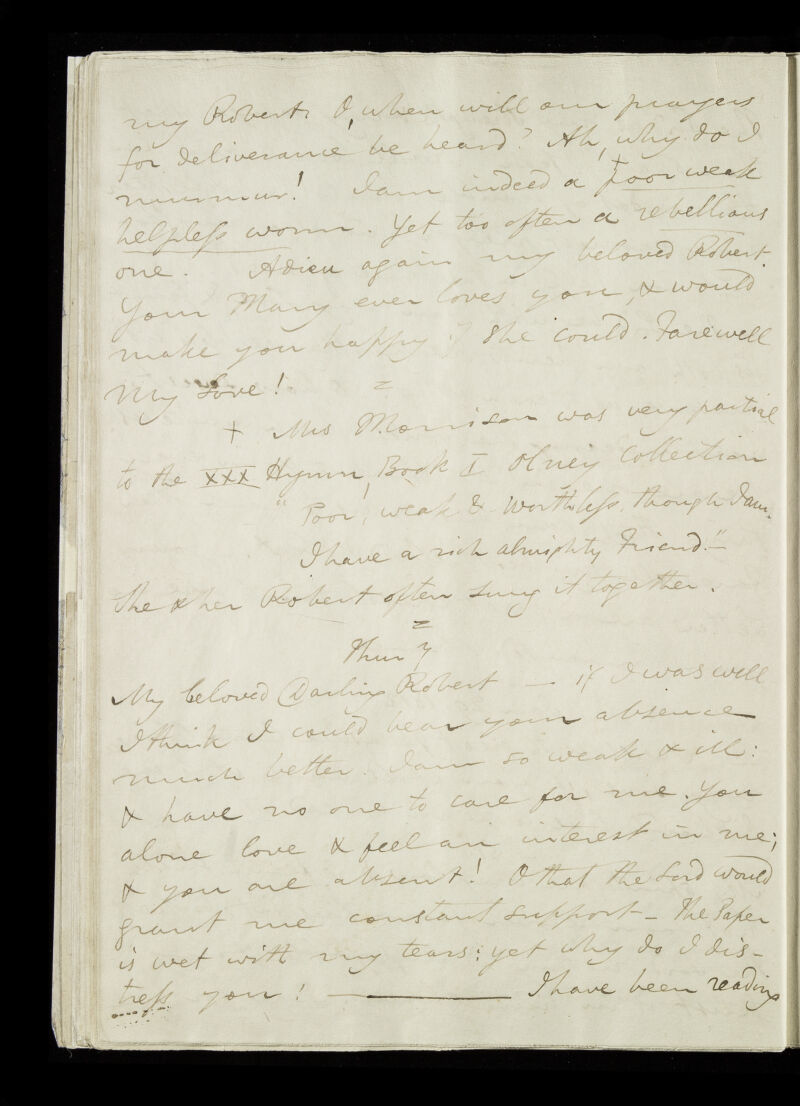 my Robert. O, when will our prayers
for deliverance be heard? Ah, why do I
murmur! I am indeed a †poor weak
helpless worm. Yet too often a rebellious
one. Adieu again my beloved Robert.
Your Mary ever loves you, & would
make you happy if she could. Farewell
My Love! =
+ Mrs Morrison was very partial
to the XXX Hymn, Book I Olney Collection
"Poor, weak & worthless, though I am.
I have a rich almighty Friend."—
She & her Robert often sung it together.
=
My beloved Darling Robert — if I was well
I think I could bear your absence
much better. I am so weak & ill:
& have no one to care for me. You
alone love & feel an interest in me;
& you are absent! O that the Lord would
grant me constant support — The Paper
is wet with my tears: yet why do I dis-
tress you! ——— I have been reading